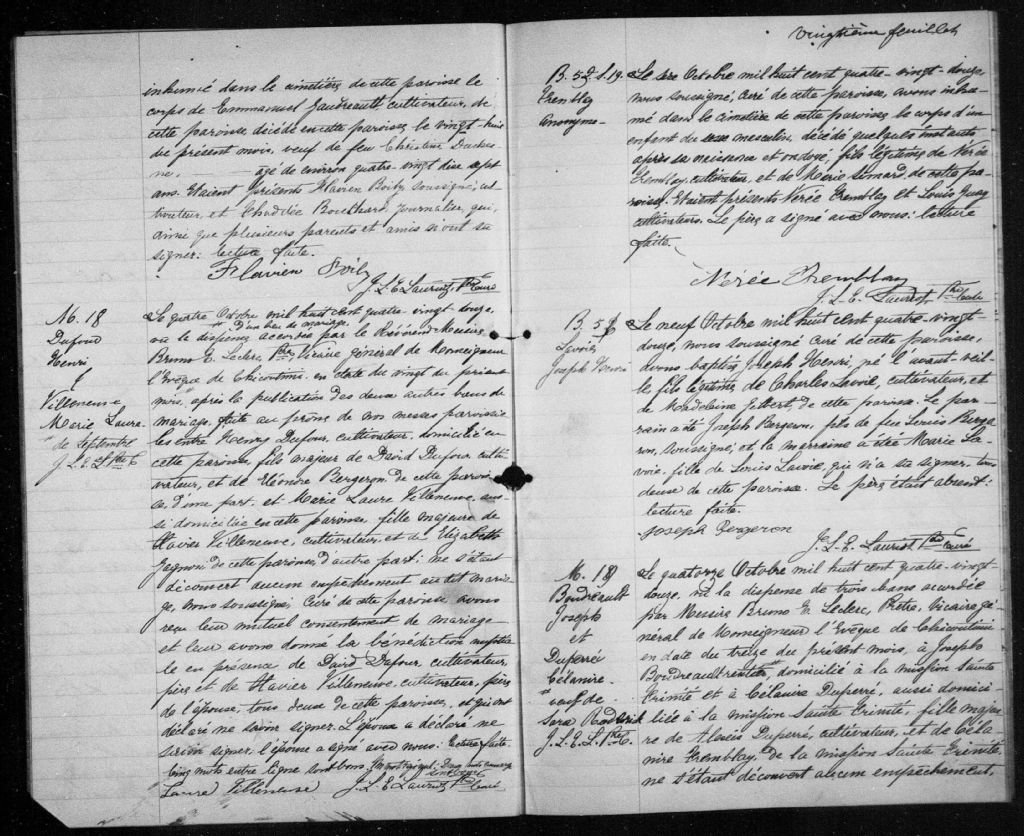 inhumé dans le cimetière de cette paroisse le
corps de Emmanuel Gaudreault cultivateur, de
cette paroisse, décédé en cette paroisse, le vingt-huit
du présent mois, veuf de feu Christine Duches
ne, âgé de environ quatre-vingt dix sept
ans. Etaient présents Flavien Boily soussigné, cul
tivateur, et Thaddée Bouchard, journalier, qui,
ainsi que plusieurs parents et amis n'ont su
signer: lecture faite.
Flavien Boily
J. L. E. Lauriot, Ptre Curé
M. 18
Dufour
Henri
&
Villeneuve
Marie Laure
" de Septembre
J. L. E. L. Ptre C
Le quatre Octobre mil huit cent quatre-vingt-douze,
" d'un ban de mariage,
vu la dispense accordée par le Révérend Messire
Bruno E. Leclerc, Ptre, Vicaire général de Monseigneur
l'Evêque de Chicoutimi en date du vingt du présent
mois, " après la publication des deux autres bans de
mariage, faite au prône de nos messes paroissia
les entre Henry Dufour, cultivateur, domicilié en
cette paroisse, fils majeur de David Dufour culti
vateur, et de Eléonore Bergeron de cette parois
se, d'une part, et Marie Laure Villeneuve, aus-
si domiciliée en cette paroisse, fille majeure de
Xavier Villeneuve, cultivateur, et de Elizabeth
Gagnon de cette paroisse, d'autre part; ne s'étant
découvert aucun empêchement au dit maria
ge, Nous soussigné, Curé de cette paroisse avons
reçu leur mutuel consentement de mariage
et leur avons donné la bénédiction nuptia
le en présence de David Dufour, cultivateur,
père et de Xavier Villeneuve, cultivateur, père
de l'épouse, tous deux de cette paroisse, et qui ont
déclaré ne savoir signer. L'époux a déclaré ne
savoir signer, l'épouse a signé avec nous: lecture faite.
Cinq mots entre ligne sont bons.
Laure Villeneuve J. L. E. Lauriot, Ptre Curé
vingtième feuillet
B. 52 S. 19.
Tremblay
Anonyme
Le 1er Octobre mil huit cent quatre-vingt-douze
nous soussigné, curé de cette paroisse, avons inhu-
mé dans le cimetière de cette paroisse, le corps d'un
enfant du sexe masculin, décédé quelques instants
après sa naissance et ondoyé, fils légitime de Nérée
Tremblay, cultivateur, et de Marie Simard, de cette pa
roisse. Etaient présents Nérée Tremblay et Louis Guay
cultivateurs. Le père a signé avec nous: lecture
faite.
Nérée Tremblay
J. L. E. Lauriot, Ptre Curé
B. 5
Lavoie
Joseph Henri
Le neuf Octobre mil huit cent quatre-vingt-
douze, nous soussigné curé de cette paroisse,
avons baptisé Joseph Henri, né l'avant-veil-
le fils légitime de Charles Lavoie, cultivateur, et
de Madelaine Gilbert, de cette paroisse. Le par-
rain a été Joseph Bergeron, fils de feu Louis Berge
ron, soussigné, et la marraine a été Marie La-
voie, fille de Louis Lavoie, qui n'a su signer, tous
deux de cette paroisse. Le père était absent:
lecture faite.
Joseph Bergeron
J. L. E. Lauriot Ptre Curé
M. 19
Boudreault
Joseph
et
Duperré
Célanire
" veuf de
Sara
J. L. E. L. Ptre C.
Le quatorze Octobre mil huit cent quatre-vingt-
douze, vu la dispense de trois bans accordée
par Messire Bruno E. Leclerc, Prêtre, Vicaire gé-
néral de Monseigneur l'Evêque de Chicoutimi
en date du treize du présent mois, à Joseph
Boudreault " domicilié à la mission Sainte
Trinité et à Célanire Duperré, aussi domici-
liée à la mission Sainte Trinité, fille majeu
re de Alexis Duperré, cultivateur, et de Céla
nire Tremblay, de la mission Sainte Trinité
ne s'étant découvert aucun empêchement,